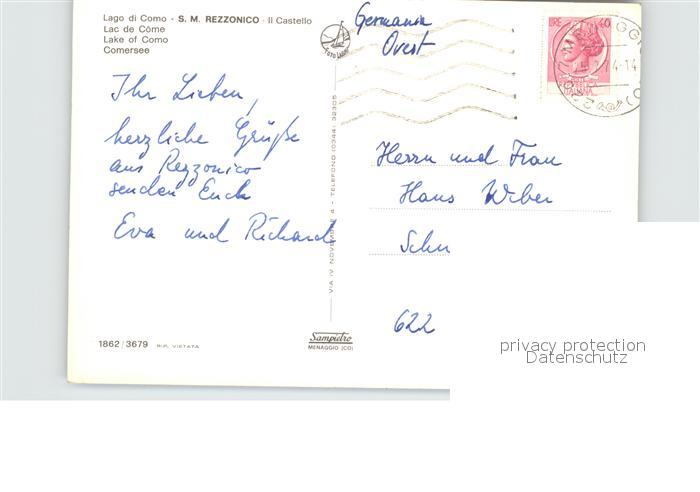 Lago di Como - S. M. REZZONICO - Il Castello
Lac de Côme
Lake of Como
Comersee
Germania
Ovest
Ihr Lieben,
herzliche Grüße
aus Rezzonico
senden Euch
Eva und Richard
VIA IV NOVEMBRE 4 - TELEFONO (0344) 32305
Herrn und Frau
Hans Weber
622
1862/3679 RIP. VIETATA
Sampietro
MENAGGIO (CO)
privacy protection
Datenschutz